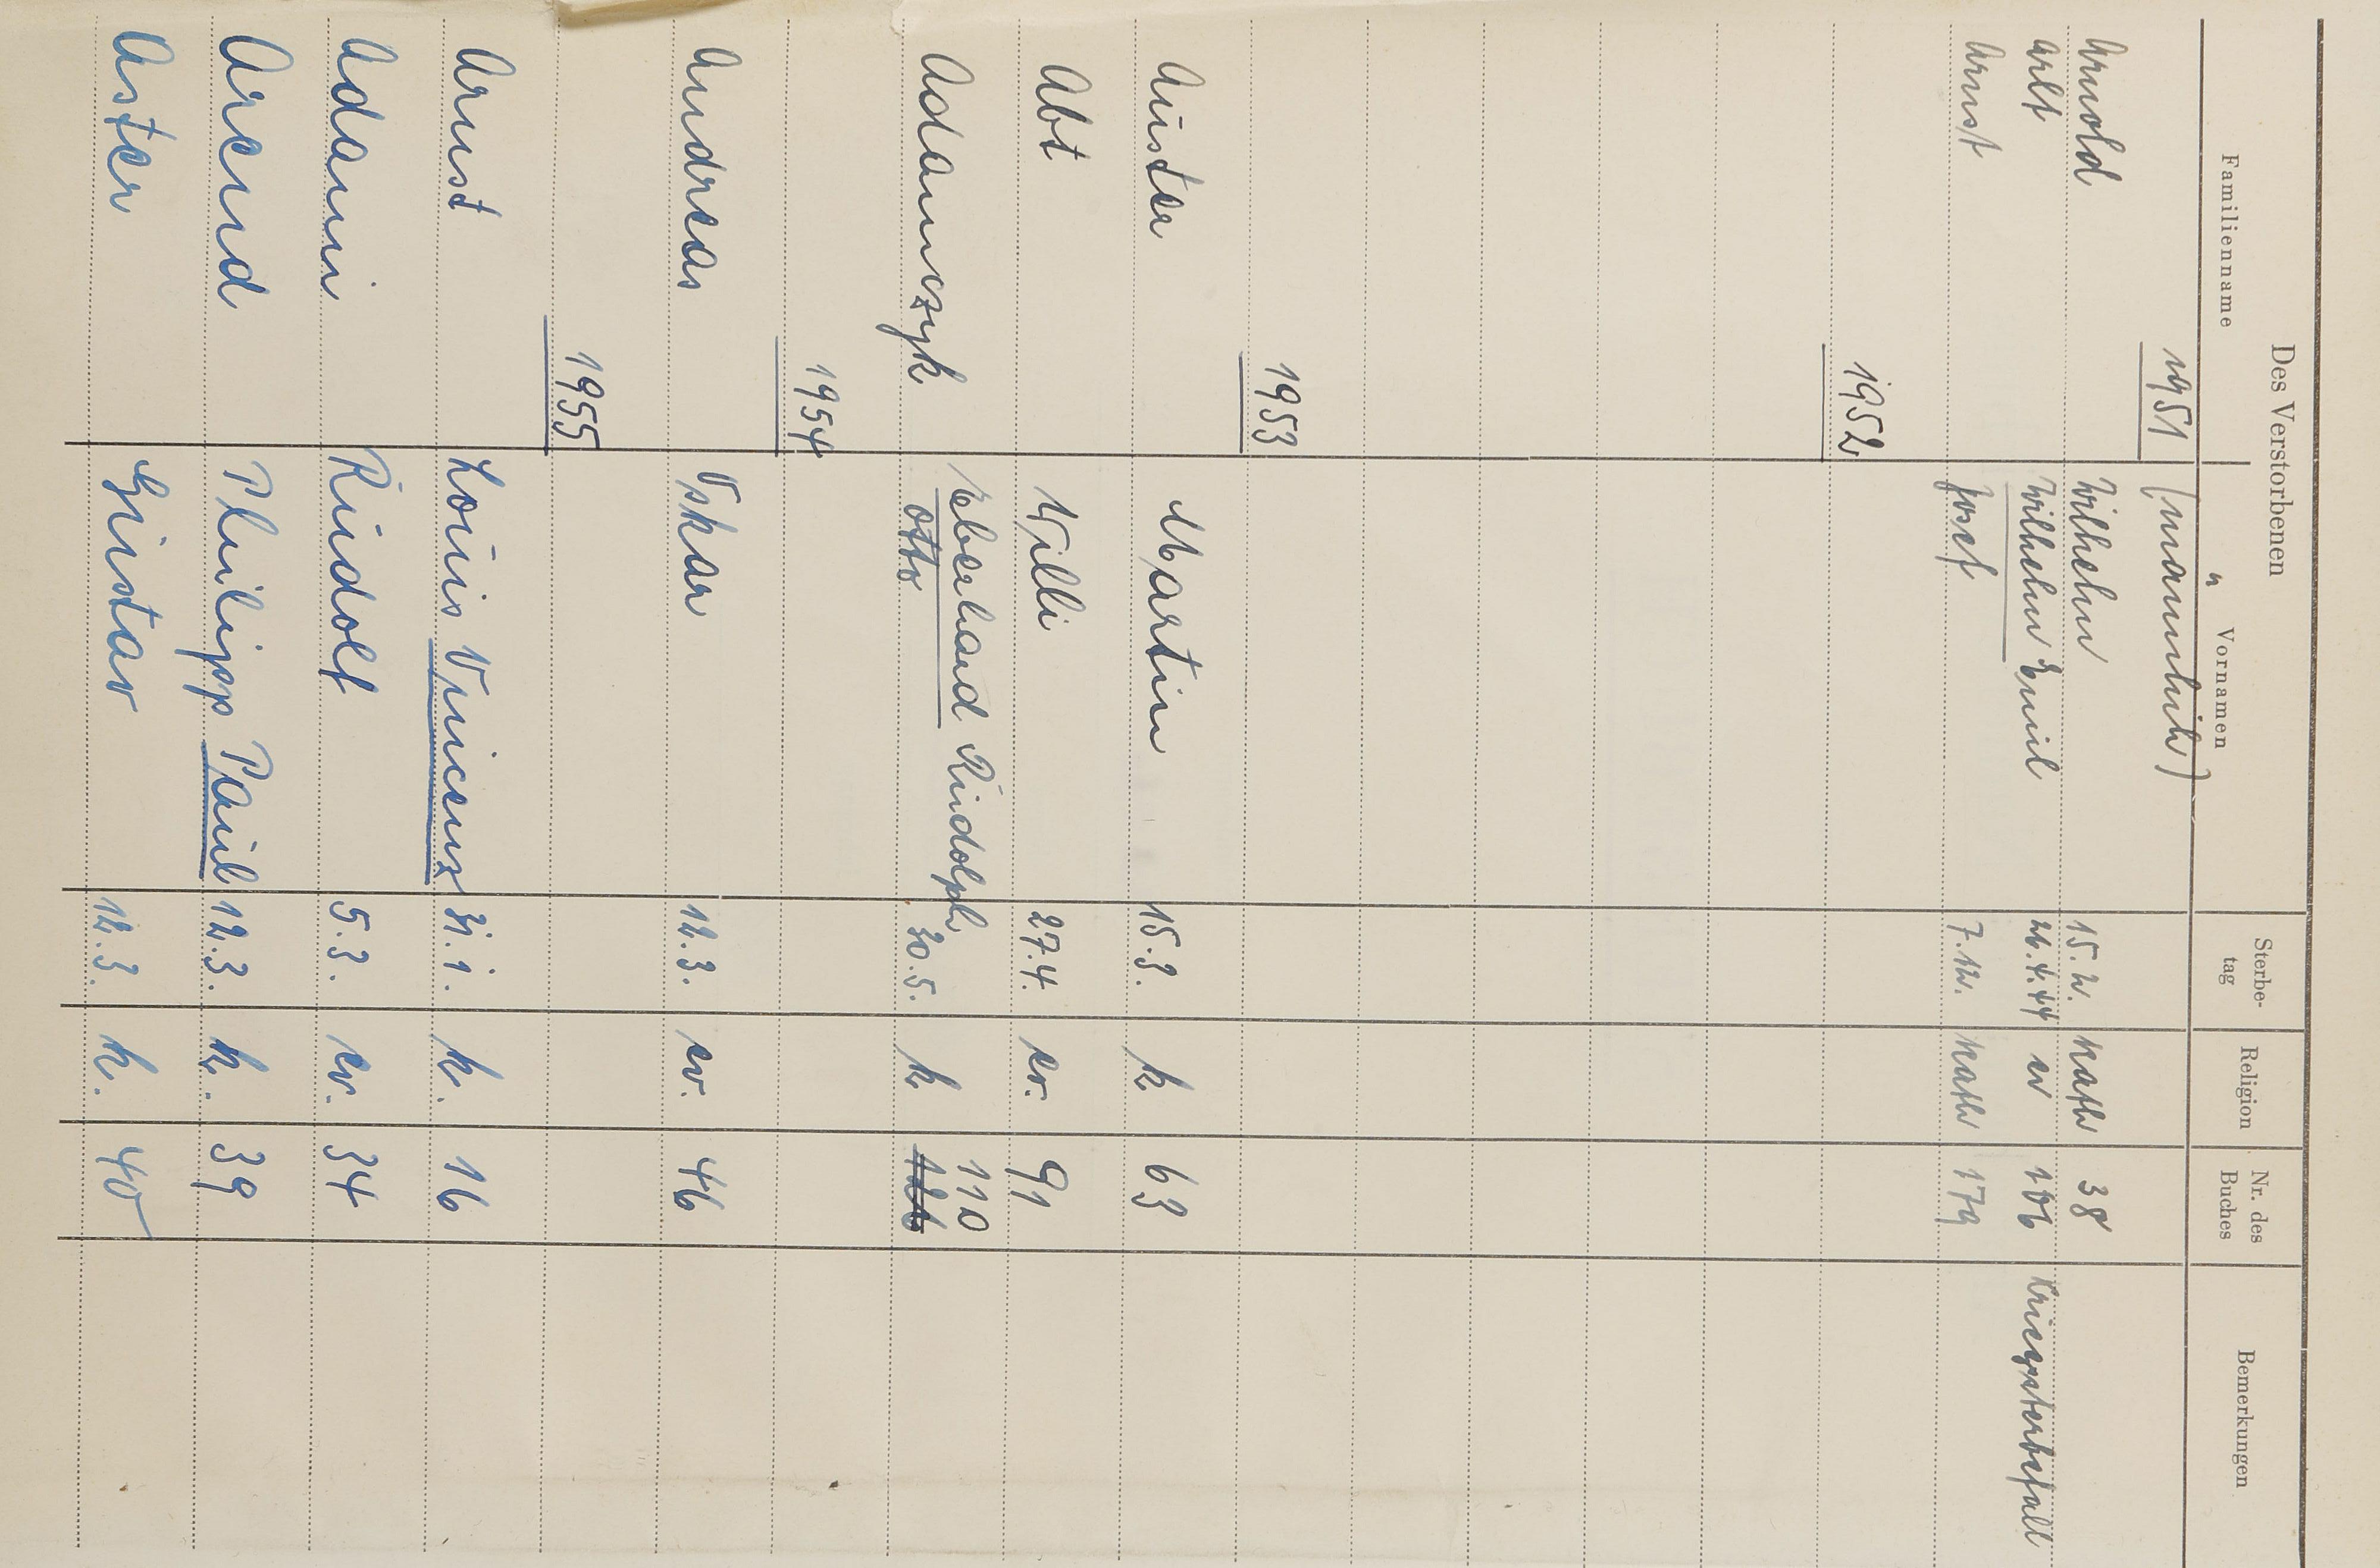 Des Verstorbenen
Familienname Vornamen Sterbe-tag Religion Nr. des Buches Bemerkungen
1951 (männlich)
Arnold Wilhelm 15. 2. Kath 38
Arlt Wilhelm Emil 26.4.44 ev 106 Kriegssterbefall
Arnst Josef 7.12. Kath 179
1952
1953
Auster Martin 15.3. k 63
Abt Willi 27.4. ev. 91
Adamczyk Eberhard Rudolph 110
Otto 30.5. k
1954
Andreas Oskar 12.3. ev. 46
1955
Arnst Louis Vincenz 31.1. k. 16
Adami Rudolf 5.3. ev. 34
Arend Philipp Paul 12.3. k. 39
Aster Gustav 12.3. k. 40